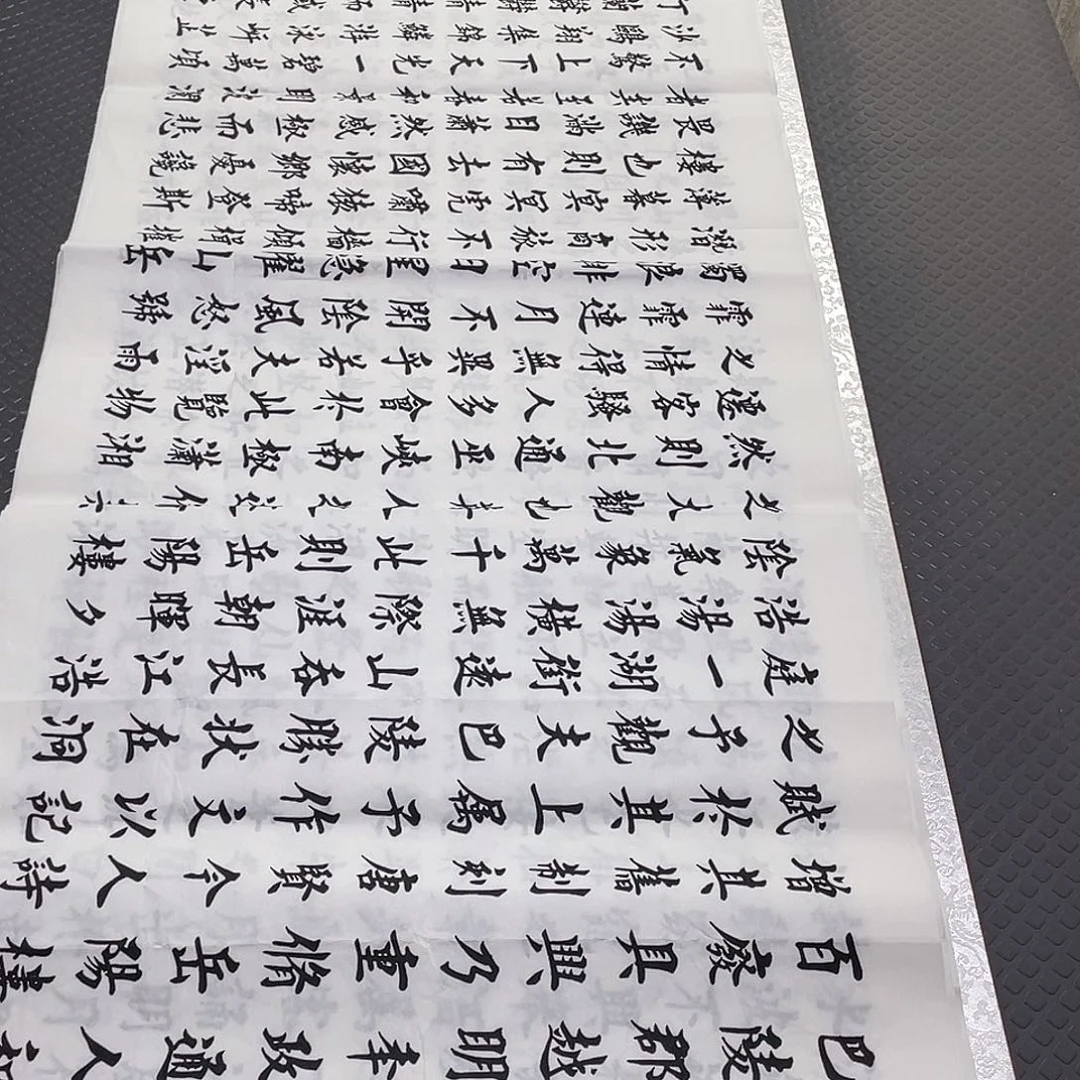 巴陵郡越明年政通人和
百廢具興乃重脩岳陽樓
增其舊制刻唐賢今人詩
賦於其上屬予作文以記
之予觀夫巴陵勝狀在洞
庭一湖銜遠山吞長江浩
浩湯湯橫無際涯朝暉夕
陰氣象萬千此則岳陽樓
之大觀也前人之述備矣
然則北通巫峽南極瀟湘
遷客騷人多會於此覽物
之情得無異乎若夫淫雨
霏霏連月不開陰風怒號
濁浪排空日星隱曜山岳
潛形商旅不行檣傾楫摧
薄暮冥冥虎嘯猿啼登斯
樓也則有去國懷鄉憂讒
畏譏滿目蕭然感極而悲
者矣至若春和景明波瀾
不驚上下天光一碧萬頃
沙鷗翔集錦鱗游泳岸芷
汀蘭